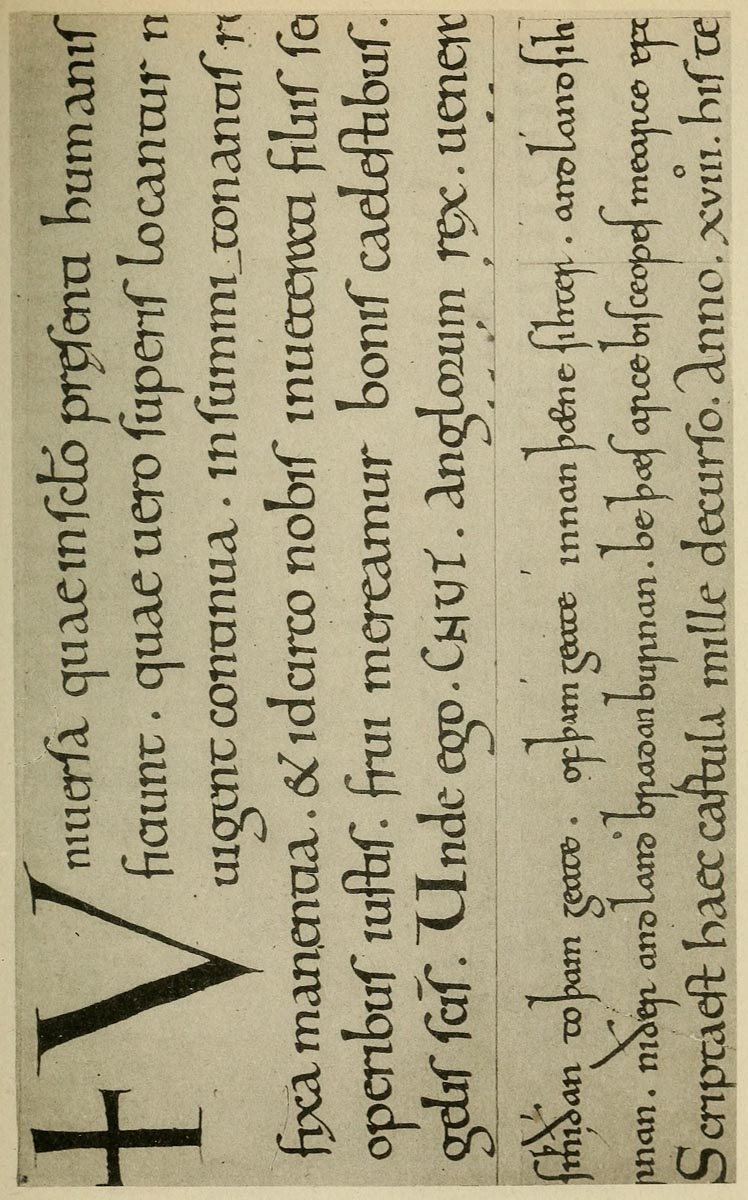 + Vniuersa quae in scto presenti humanis
ficiunt . quae uero superis locantur n
uigent continua . in summi tonantis r
fixa manentia . & idcirco nobis inueterata filiis sa
operibus iustis . frui mereamur bonis caelestibus .
gelis scis . Unde ego . CNUT . Anglorum rex . uenera
smiðan to þam geate . of þam geate innan þæne silhter . andlang sih
rnan . niðer andlang bradan burnan . be þæs arcebisceopes mearce eft
Scripta est haec cartula mille decurso . Anno . xviii . his te